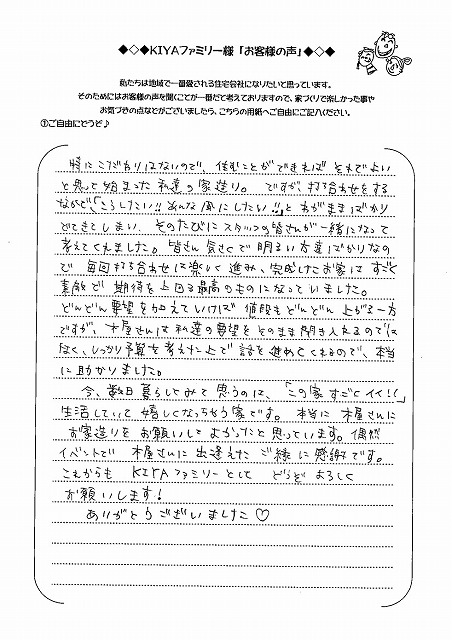 ◆◇◆KIYAファミリー様「お客様の声」◆◇◆
私たちは地域で一番愛される住宅会社になりたいと思っています。
そのためにはお客様の声を聞くことが一番だと考えておりますので、家づくりで楽しかった事や
お気づきの点などがございましたら、こちらの用紙へご自由にご記入ください。
①ご自由にどうぞ♪
特にこだわりはないので、住むことができればそれでよい
と思って始まった私達の家造り。ですが、打ち合わせをする
なかで、「こうしたい!!あんな風にしたい!!」とわがままばかり
でてきてしまい、そのたびにスタッフの皆さんが一緒になって
考えてくれました。皆さん気さくで明るい方達ばかりなの
で毎回打ち合わせは楽しく進み、完成したお家はすごく
素敵で期待を上回る最高のものになっていました。
どんどん要望を加えていけば値段もどんどん上がる一方
ですが、木屋さんは私達の要望をそのまま聞き入れるのでは
なく、しっかり予算を考えた上で話を進めてくれるので、本当
に助かりました。
今、数日暮らしてみて思うのは、「この家すごくイイ!!」
生活していて嬉しくなっちゃう家です。本当に木屋さんに
お家造りをお願いしてよかったと思っています。偶然
イベントで木屋さんに出逢えたご縁に感謝です。
これからもKIYAファミリーとしてどうぞよろしく
お願いします!
ありがとうございました♡